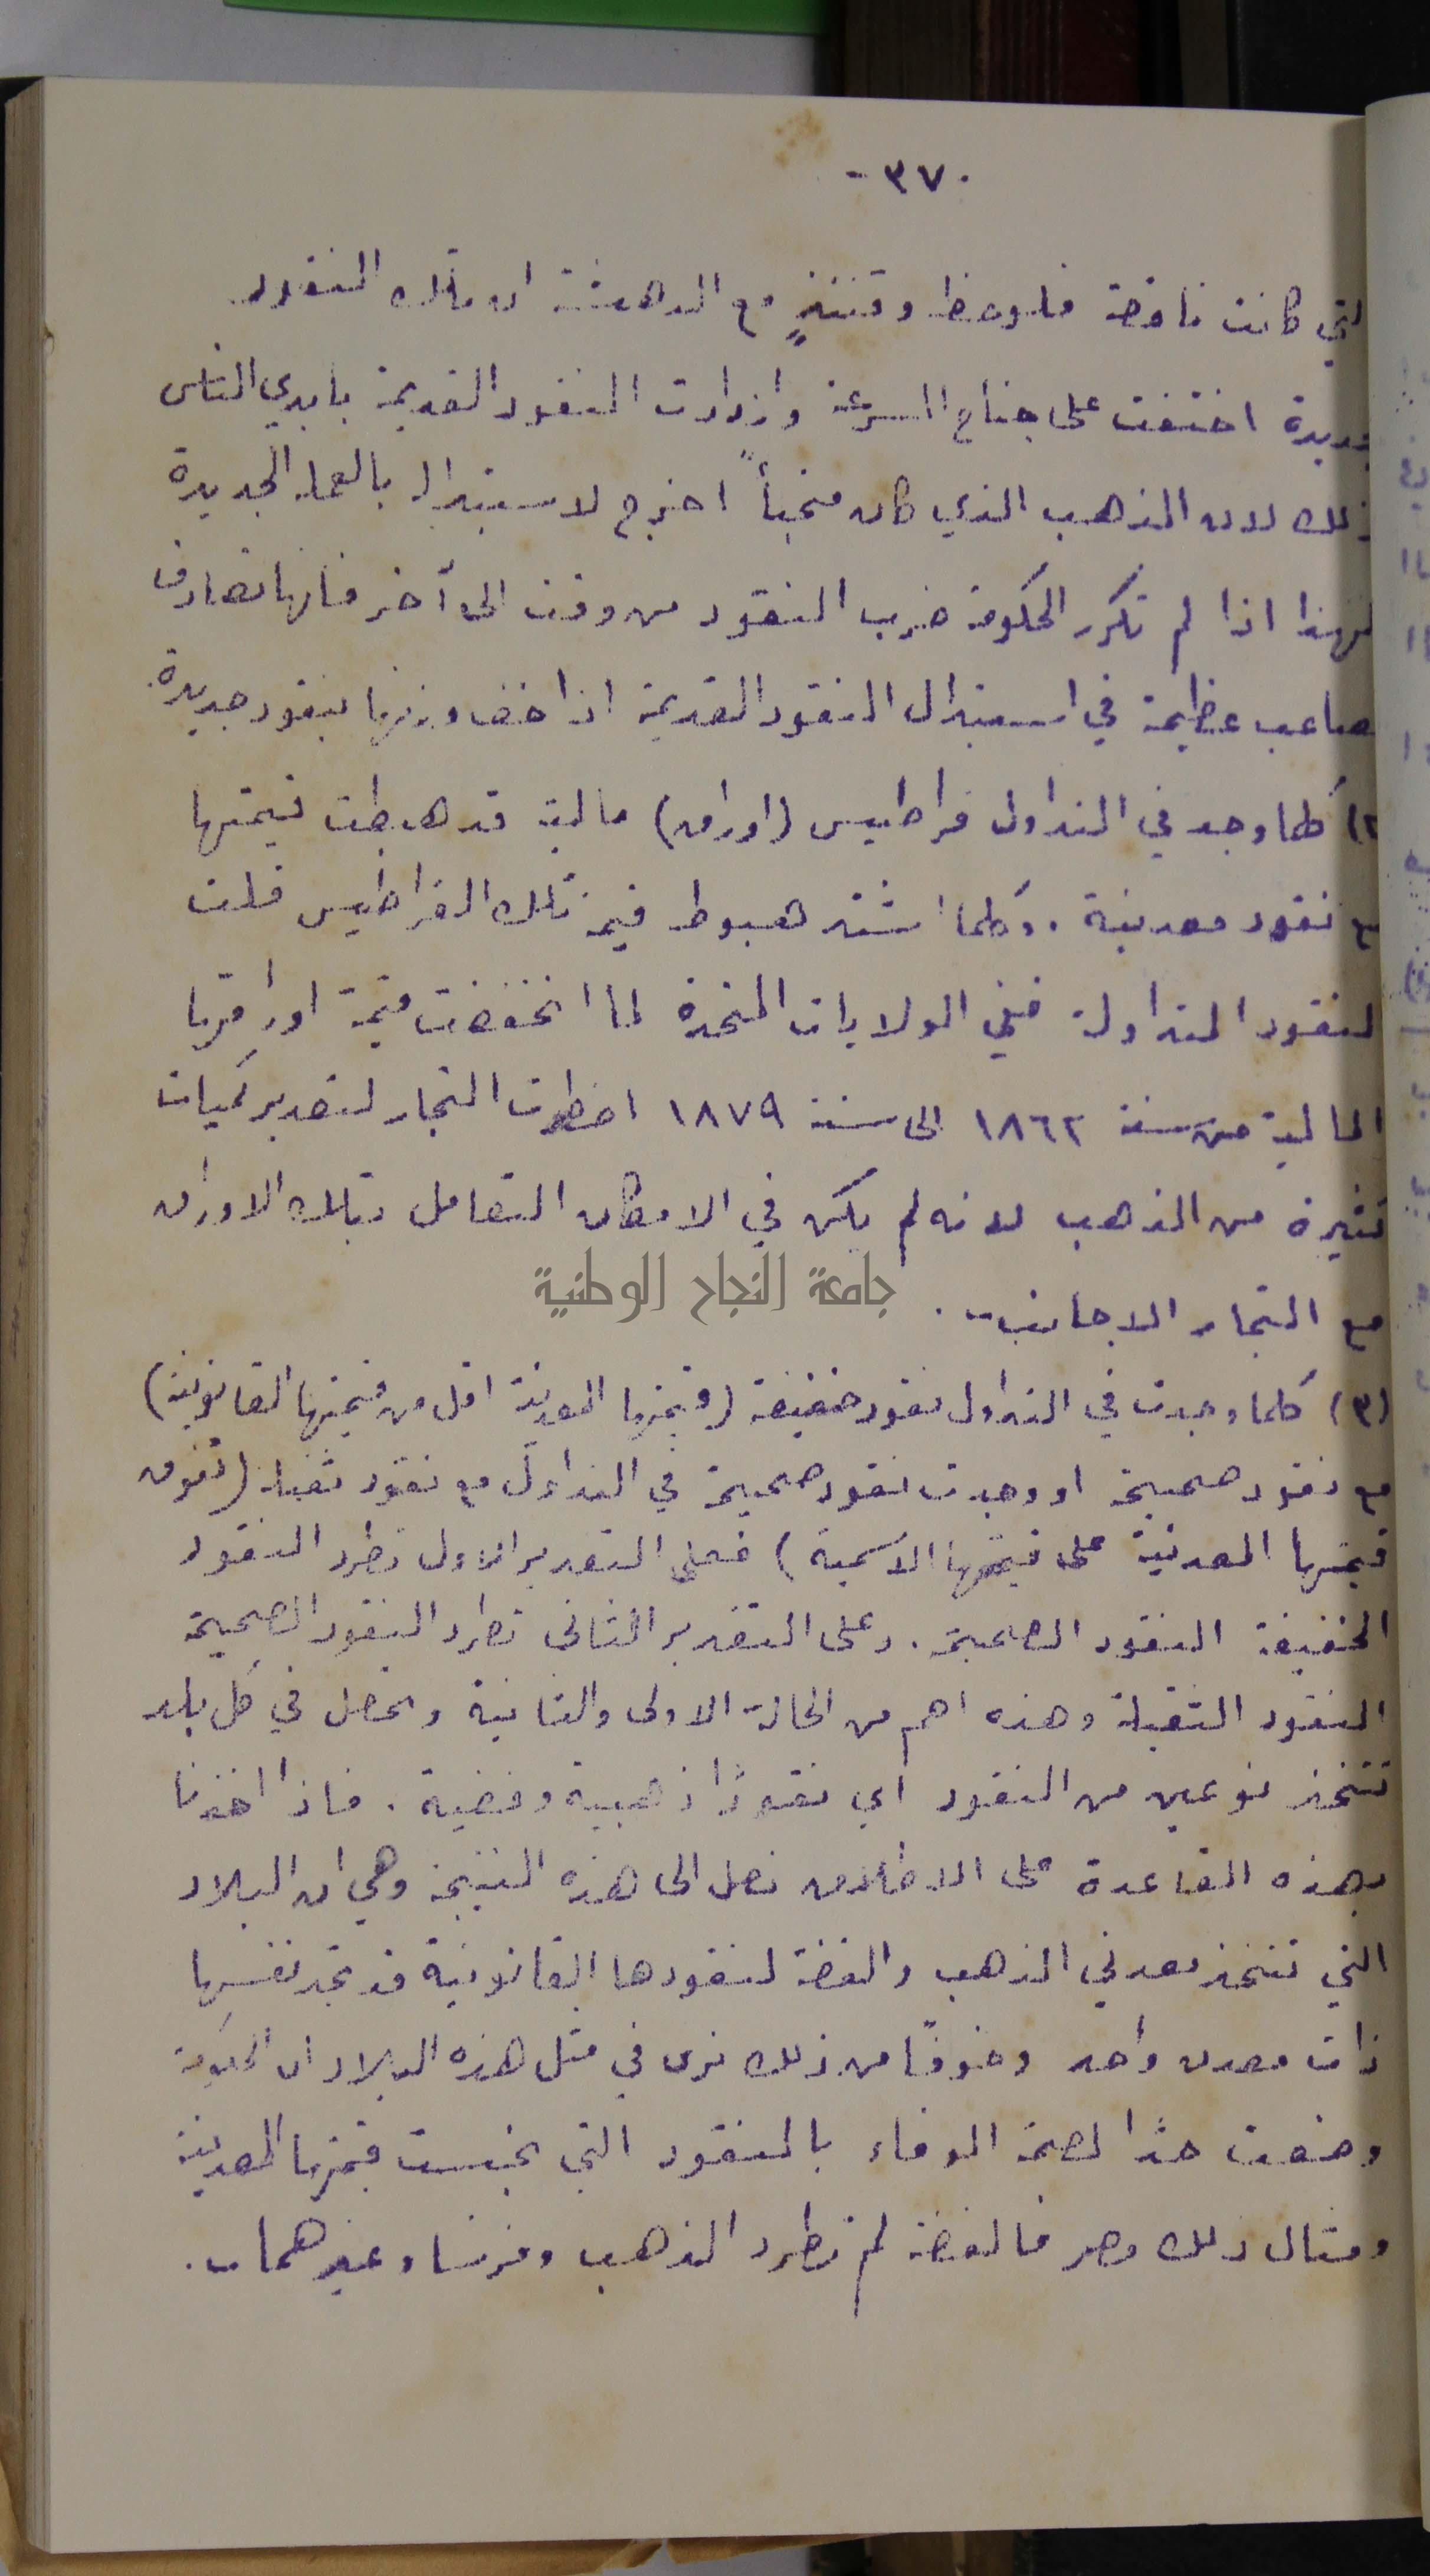 ٣٧٠ -
لتي كانت ناقصة فلوحظ وقتئذٍ مع الدهشة ان تلك النقود
جديدة اختفت على جناح السرعة وازدادت النقود القديمة بايدي الناس
ذلك لان الذهب الذي كان مخبأً اخرج لاستبدال بالعملة الجديدة
لهذا اذا لم تكرر الحكومة ضرب النقود من وقت الى آخر فانها تصادف
صاعب عظيمة في استبدال النقود القديمة اذا خف وزنها بنقود جديدة.
٢) كلما وجد في التداول قراطيس (اوراق) مالية قد هبطت قيمتها
مع نقود معدنية . وكلما اشتد هبوط قيمة تلك القراطيس قلت
لنقود المتداولة ففي الولايات المتحدة لما انخفضت قيمة اوراقها
المالية من سنة ١٨٦٢ الى سنة ١٨٧٩ اضطرت التجار لتصدير كميات
كثيرة من الذهب لانه لم يكن في الامكان التعامل بتلك الاوراق
جامعة النجاح الوطنية
مع التجار الاجانب .
(٣) كلما وجدت في التداول نقود خفيفة (قيمتها المعدنية اقل من قيمتها القانونية)
مع نقود صحيحة او وجدت نقود صحيحة في التداول مع نقود ثقيلة (تفوق
قيمتها المعدنية على قيمتها الاسمية) فعلى التقدير الاول تطرد النقود
الخفيفة النقود الصحيحة . وعلى التقدير الثاني تطرد النقود الصحيحة
النقود الثقيلة وهذه اهم من الحالة الاولى والثانية وتحصل في كل بلد
تتخذ نوعين من النقود اي نقودًا ذهبية وفضية . فاذا اخذنا
بهذه القاعدة على الاطلاق نصل الى هذه النتيجة وهي ان البلاد
التي تتخذ معدني الذهب والفضة لنقودها القانونية قد تجد نفسها
ذات معدن واحد وخوفًا من ذلك نرى في مثل هذه البلاد ان الحكومة
وضعت حدًا لصحة الوفاء بالنقود التي بخست قيمتها المعدنية
ومثال ذلك مصر فالفضة لم تطرد الذهب وفرنسا وغيرهما .